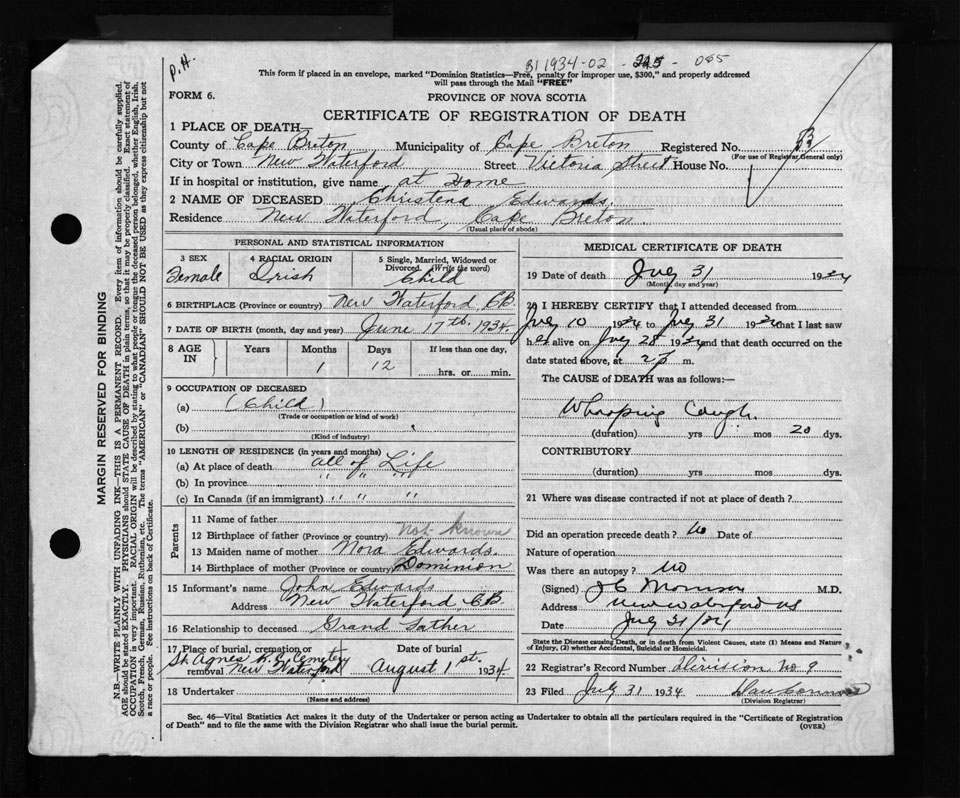 P.H.
B1 1934-02 - 215 - 085
This form if placed in an envelope, marked "Dominion Statistics—Free, penalty for improper use, $300," and properly addressed
will pass through the Mail "FREE"
FORM 6.
PROVINCE OF NOVA SCOTIA
CERTIFICATE OF REGISTRATION OF DEATH
1 PLACE OF DEATH—
County of Cape Breton Municipality of Cape Breton Registered No.
(For use of Registrar General only)
City or Town New Waterford Street Victoria Street House No.
If in hospital or institution, give name at Home
2 NAME OF DECEASED Christena Edwards
Residence New Waterford, Cape Breton
(Usual place of abode)
PERSONAL AND STATISTICAL INFORMATION
3 SEX 4 RACIAL ORIGIN 5 Single, Married, Widowed or
Divorced. (Write the word)
Female Irish Child
6 BIRTHPLACE (Province or country) New Waterford C.B.
7 DATE OF BIRTH (month, day and year) June 17th. 1934.
8 AGE IN Years Months Days If less than one day,
1 12 hrs. or min.
9 OCCUPATION OF DECEASED
(a) (Child)
(Trade or occupation or kind of work)
(b)
(Kind of industry)
10 LENGTH OF RESIDENCE (in years and months)
(a) At place of death all of Life
(b) In province " " "
(c) In Canada (if an immigrant) " " "
Parents
11 Name of father
12 Birthplace of father (Province or country) Not known
13 Maiden name of mother Nora Edwards.
14 Birthplace of mother (Province or country) Dominion
15 Informant's name John Edwards
Address New Waterford, C.B.
16 Relationship to deceased Grand Father
17 Place of burial, cremation or removal Date of burial
St. Agnes R.C. Cemetery New Waterford August 1st. 1934
18 Undertaker
(Name and address)
MEDICAL CERTIFICATE OF DEATH
19 Date of death July 31 1934
(Month, day and year)
20 I HEREBY CERTIFY that I attended deceased from
July 10 1934 to July 31 1934 that I last saw
her alive on July 28 1934 and that death occurred on the
date stated above, at 2 p m.
The CAUSE of DEATH was as follows:—
Whooping Cough
(duration) yrs mos 20 dys.
CONTRIBUTORY
(duration) yrs mos dys.
21 Where was disease contracted if not at place of death?
Did an operation precede death? No Date of
Nature of operation
Was there an autopsy? No
(Signed) M.D.
Address New Waterford NS
Date July 31/34
State the Disease causing Death, or in death from Violent Causes, state (1) Means and Nature
of Injury, (2) whether Accidental, Suicidal or Homicidal.
22 Registrar's Record Number Division No 9
23 Filed July 31 1934
(Division Registrar)
Sec. 46—Vital Statistics Act makes it the duty of the Undertaker or person acting as Undertaker to obtain all the particulars required in the "Certificate of Registration
of Death" and to file the same with the Division Registrar who shall issue the burial permit.
(OVER)
MARGIN RESERVED FOR BINDING
N.B.—WRITE PLAINLY WITH UNFADING INK—THIS IS A PERMANENT RECORD. Every item of information should be carefully supplied.
AGE should be stated EXACTLY. PHYSICIANS should STATE CAUSE OF DEATH in plain terms, so that it may be properly classified. Exact statement of
OCCUPATION is very important. RACIAL ORIGIN will be described by stating to what people or tongue the deceased person belonged, whether English, Irish,
Scotch, French, German, Russian, Ruthenian, etc. The terms "AMERICAN" or "CANADIAN" SHOULD NOT BE USED as they express citizenship but not
a race or people. See instructions on back of Certificate.